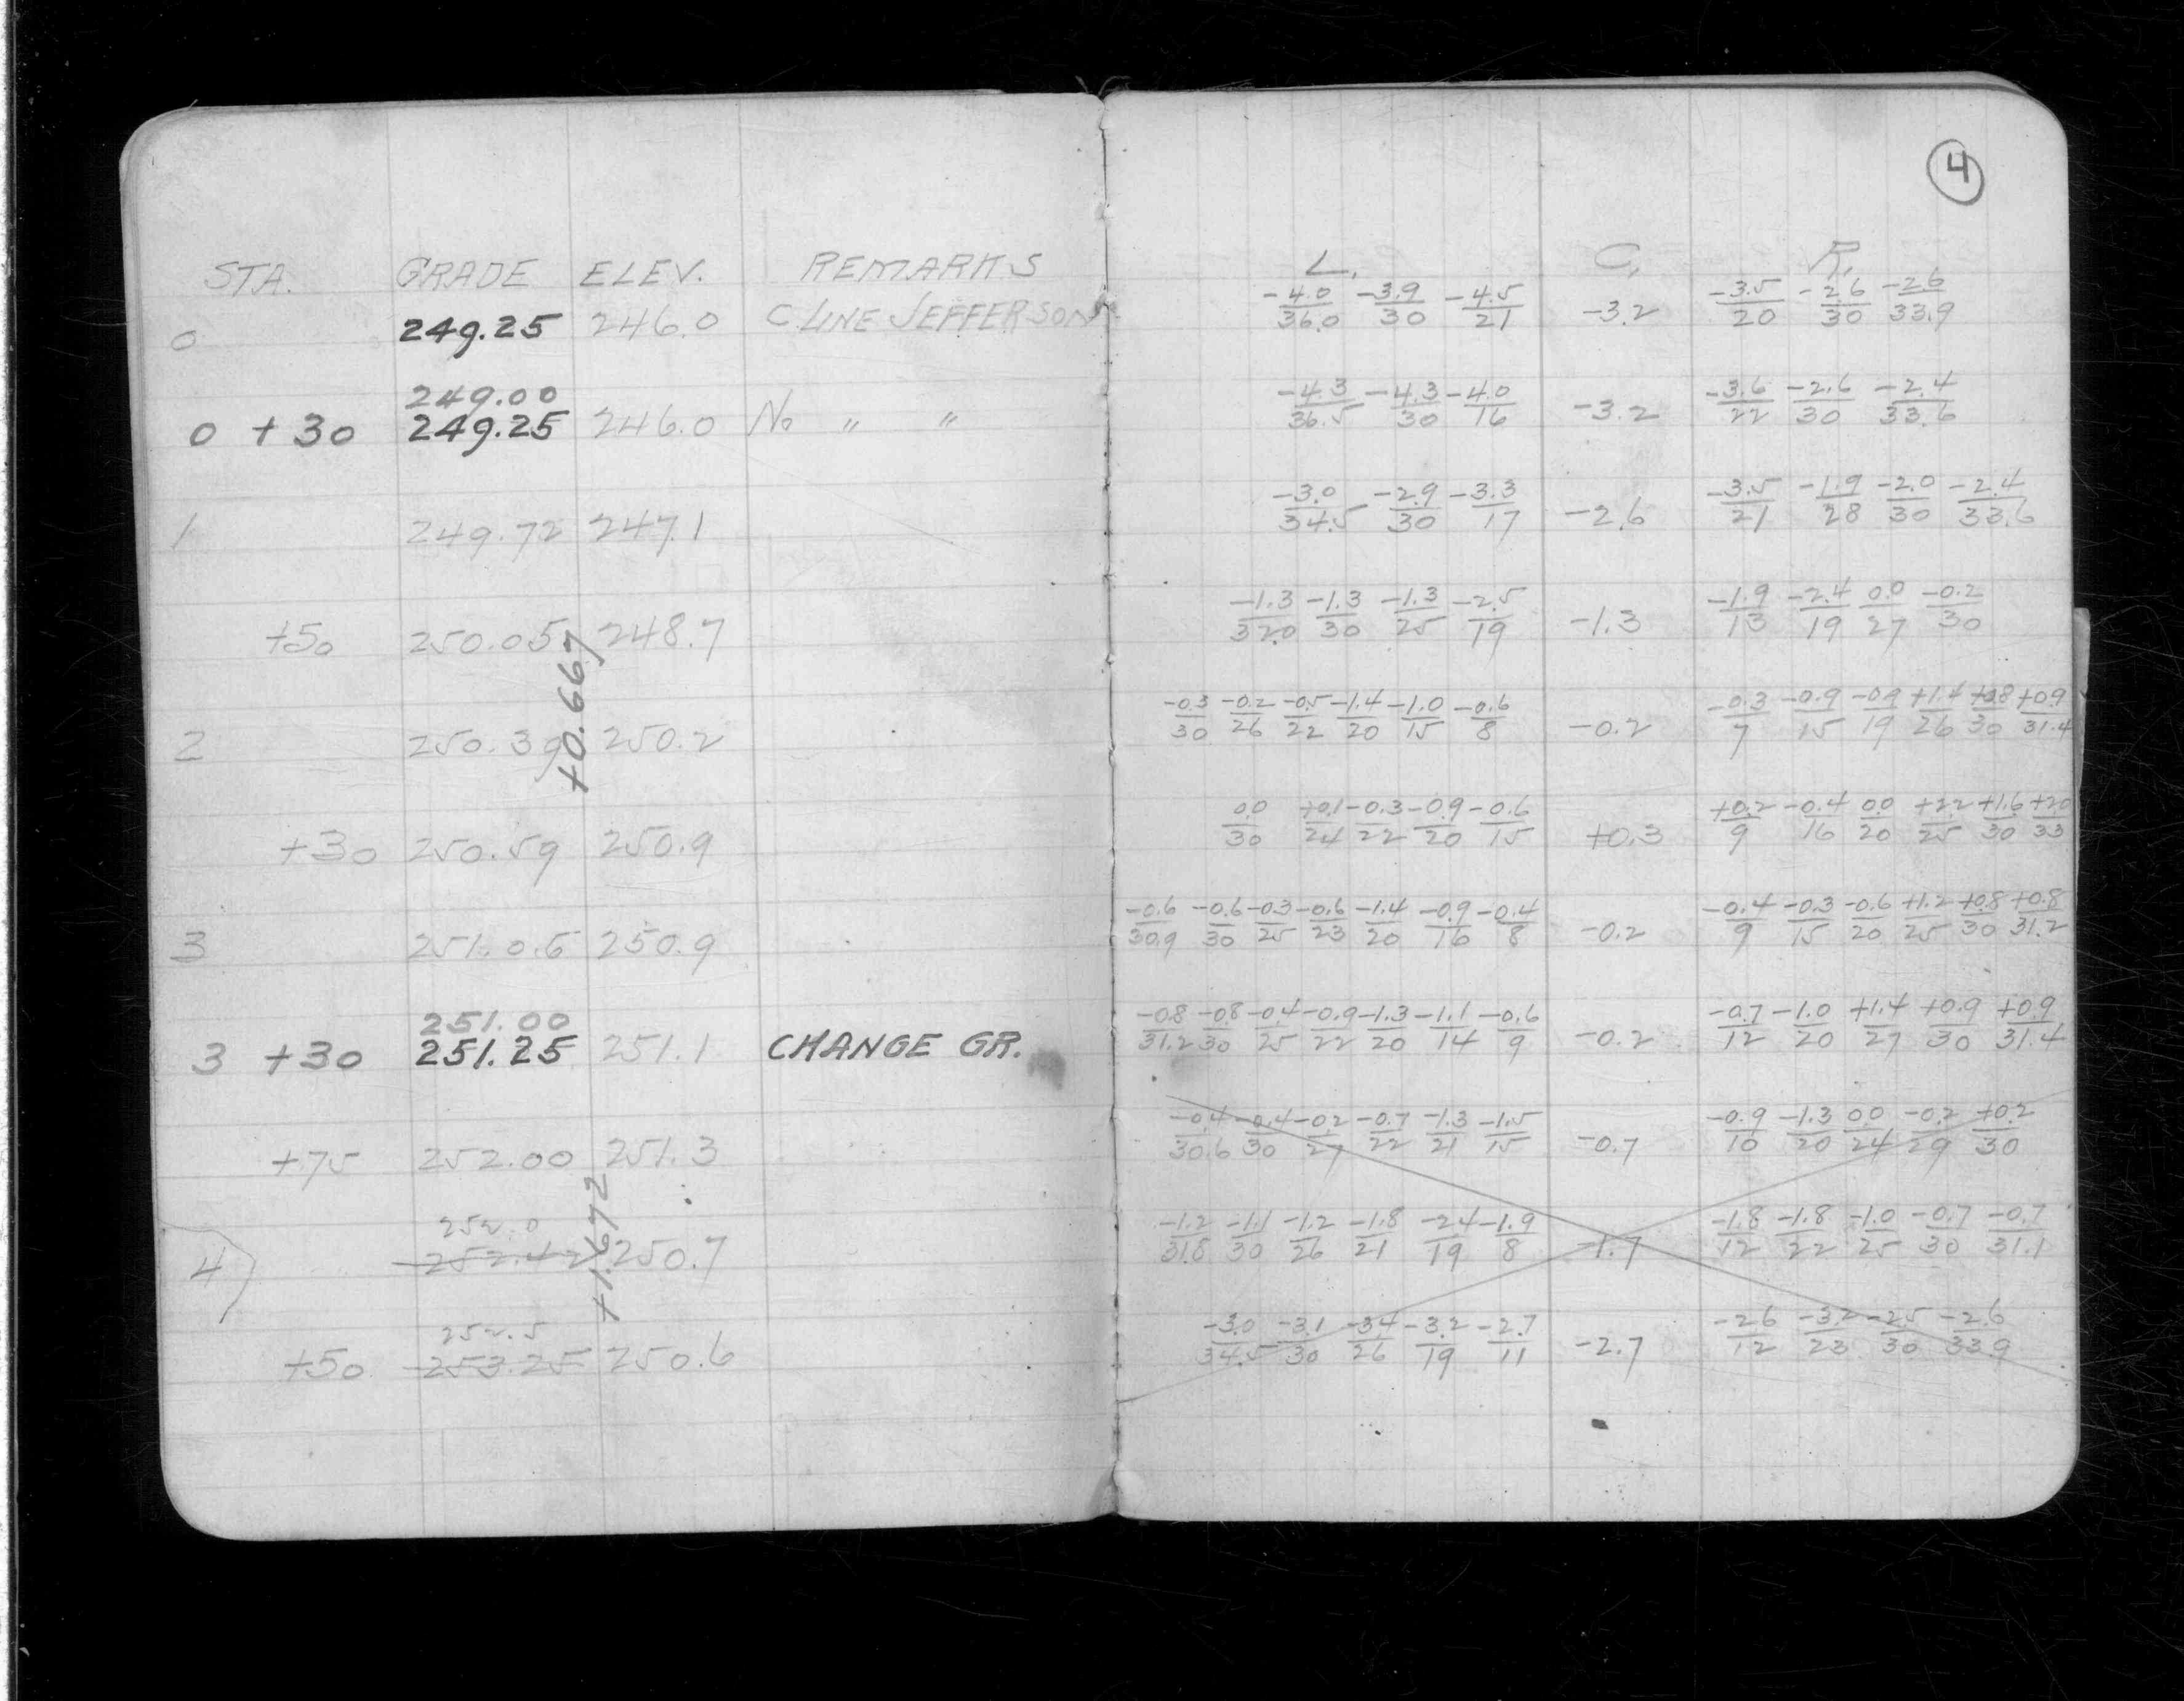 4
STA. GRADE ELEV. REMARKS L. C. R.
0 249.25 246.0 C. LINE JEFFERSON -4.0/36.0 -3.9/30 -4.5/21 -3.2 -3.5/20 -2.6/30 -2.6/33.9
249.00
0 +30 249.25 246.0 No " " -4.3/36.5 -4.3/30 -4.0/16 -3.2 -3.6/22 -2.6/30 -2.4/33.6
1 249.72 247.1 -3.0/34.5 -2.9/30 -3.3/17 -2.6 -3.5/21 -1.9/28 -2.0/30 -2.4/33.6
+50 250.05 248.7 -1.3/32.0 -1.3/30 -1.3/25 -2.5/19 -1.3 -1.9/13 -2.4/19 0.0/27 -0.2/30
+0.667
2 250.39 250.2 -0.3/30 -0.2/26 -0.5/22 -1.4/20 -1.0/15 -0.6/8 -0.2 -0.3/7 -0.9/15 -0.9/19 +1.4/26 +0.8/30 +0.9/31.4
+30 250.59 250.9 0.0/30 +0.1/24 -0.3/22 -0.9/20 -0.6/15 +0.3 +0.2/9 -0.4/16 0.0/20 +2.2/25 +1.6/30 +2.0/33
3 251.06 250.9 -0.6/30.9 -0.6/30 -0.3/25 -0.6/23 -1.4/20 -0.9/16 -0.4/8 -0.2 -0.4/9 -0.3/15 -0.6/20 +1.2/25 +0.8/30 +0.8/31.2
251.00
3 +30 251.25 251.1 CHANGE GR. -0.8/31.2 -0.8/30 -0.4/25 -0.9/22 -1.3/20 -1.1/14 -0.6/9 -0.2 -0.7/12 -1.0/20 +1.4/27 +0.9/30 +0.9/31.4
+75 252.00 251.3 -0.4/30.6 -0.4/30 -0.2/27 -0.7/22 -1.3/21 -1.5/15 -0.7 -0.9/10 -1.3/20 0.0/24 -0.2/29 +0.2/30
+1.672
252.0
4 252.42 250.7 -1.2/31.8 -1.1/30 -1.2/26 -1.8/21 -2.4/19 -1.9/8 -1.7 -1.8/12 -1.8/22 -1.0/25 -0.7/30 -0.7/31.1
252.5
+50 253.25 250.6 -3.0/34.5 -3.1/30 -3.4/26 -3.2/19 -2.7/11 -2.7 -2.6/12 -3.2/23 -2.5/30 -2.6/33.9